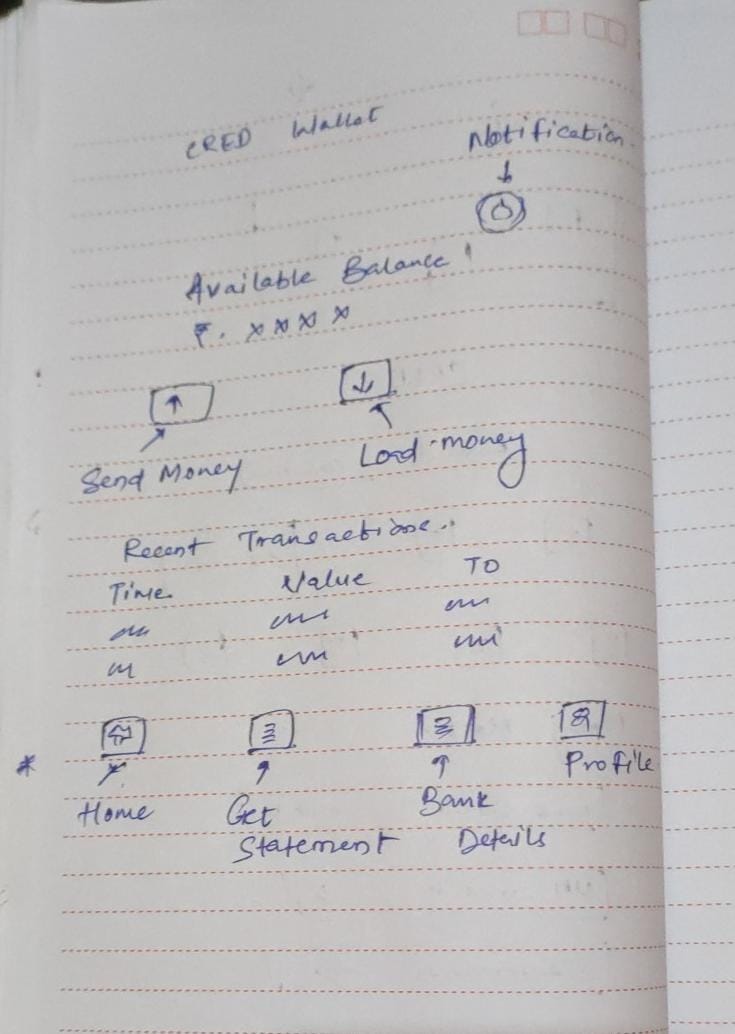 CRED Wallet
Notification.
Available Balance
₹. xxxx
Send Money
Load money
Recent Transactions..
Time. Value To
Home
Get Statement
Bank Details
Profile